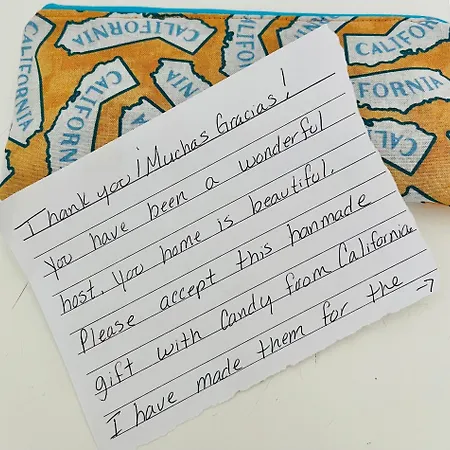 CALIFORNIA
CALIFORNIA
CALIFORNIA
CALIFORNIA
Thank you! ¡Muchas Gracias!
You have been a wonderful
host. You home is beautiful.
Please accept this hanmade
gift with Candy from California.
I have made them for the →